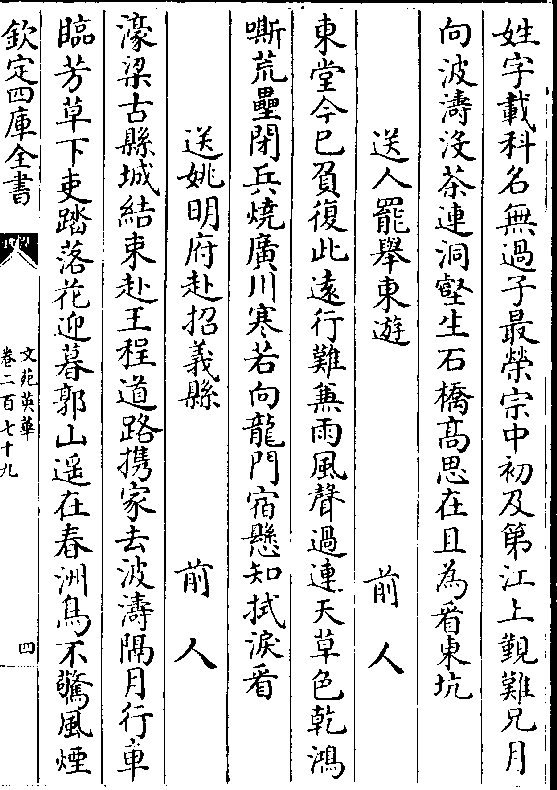 姓字載科名無過子最榮宗中初及第江上覲難兄月
向波濤沒茶連洞壑生石橋髙思在且為看東坑
送人罷舉東遊　前人
東堂今已負復此遠行難兼雨風聲過連天草色乾鴻
嘶荒壘閉兵燒廣川寒若向龍門宿懸知拭淚看
送姚明府赴招義縣　前人
濠梁古縣城結束赴王程道路攜家去波濤隔月行車
臨芳草下吏踏落花迎暮郭山遥在春洲鳥不驚風煙
欽定四庫全書
文苑英華
卷二百七十九
四